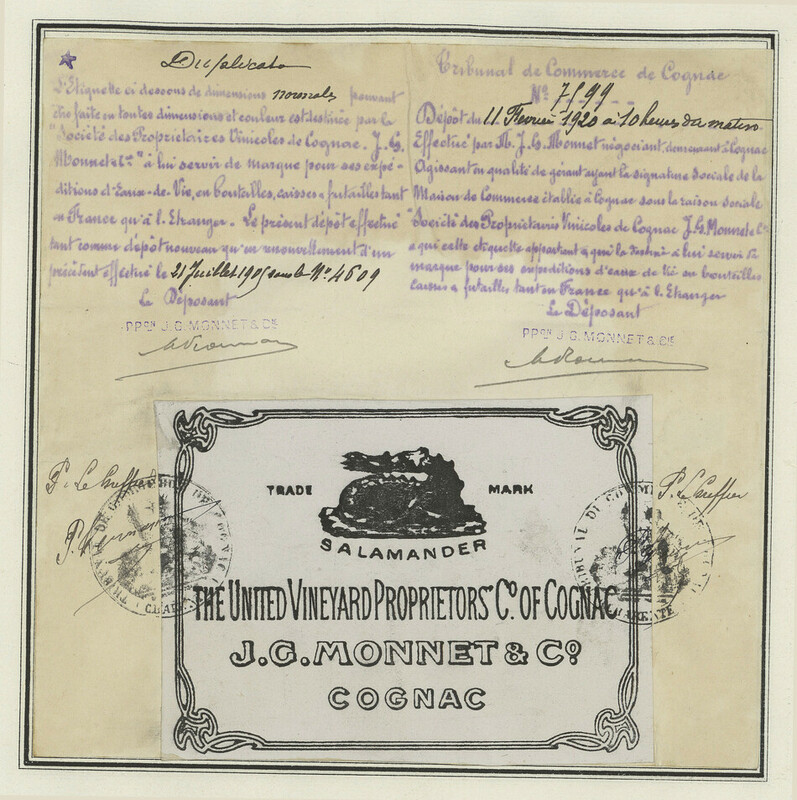 Duplicata
L'Etiquette ci dessous de dimensions normales pouvant
être faite en toutes dimensions et couleur est destinée par la
"Société des Propriétaires Vinicoles de Cognac. J. G.
Monnet & Co" à lui servir de marque pour ses expé-
ditions d'Eaux-de-Vie, en bouteilles, caisses & futailles tant
en France qu'à l'Etranger. Le présent dépôt effectué
tant comme dépôt nouveau qu'en renouvellement d'un
précédent effectué le 21 Juillet 1905 sous le No 4609
Le Déposant
PPON J.G. MONNET & CIE
Tribunal de Commerce de Cognac
No 7599
Dépôt du 11 Février 1920 à 10 heures du matin
Effectué par M. J. G. Monnet négociant demeurant à Cognac
Agissant en qualité de gérant ayant la signature sociale de la
Maison de Commerce établie à Cognac sous la raison sociale
"Société des Propriétaires Vinicoles de Cognac J. G. Monnet & Co"
à qui cette étiquette appartient & qui la destine à lui servir de
marque pour ses expéditions d'eaux de vie en bouteilles
caisses & futailles tant en France qu'à l'Etranger
Le Déposant
PPON J.G. MONNET & CIE
P. Le Greffier
P. Le Greffier
TRIBUNAL DE COMMERCE DE COGNAC
TRIBUNAL DE COMMERCE DE
CHARENTE
TRADE MARK
SALAMANDER
THE UNITED VINEYARD PROPRIETORS' Co. OF COGNAC
J.G. MONNET & Co.
COGNAC